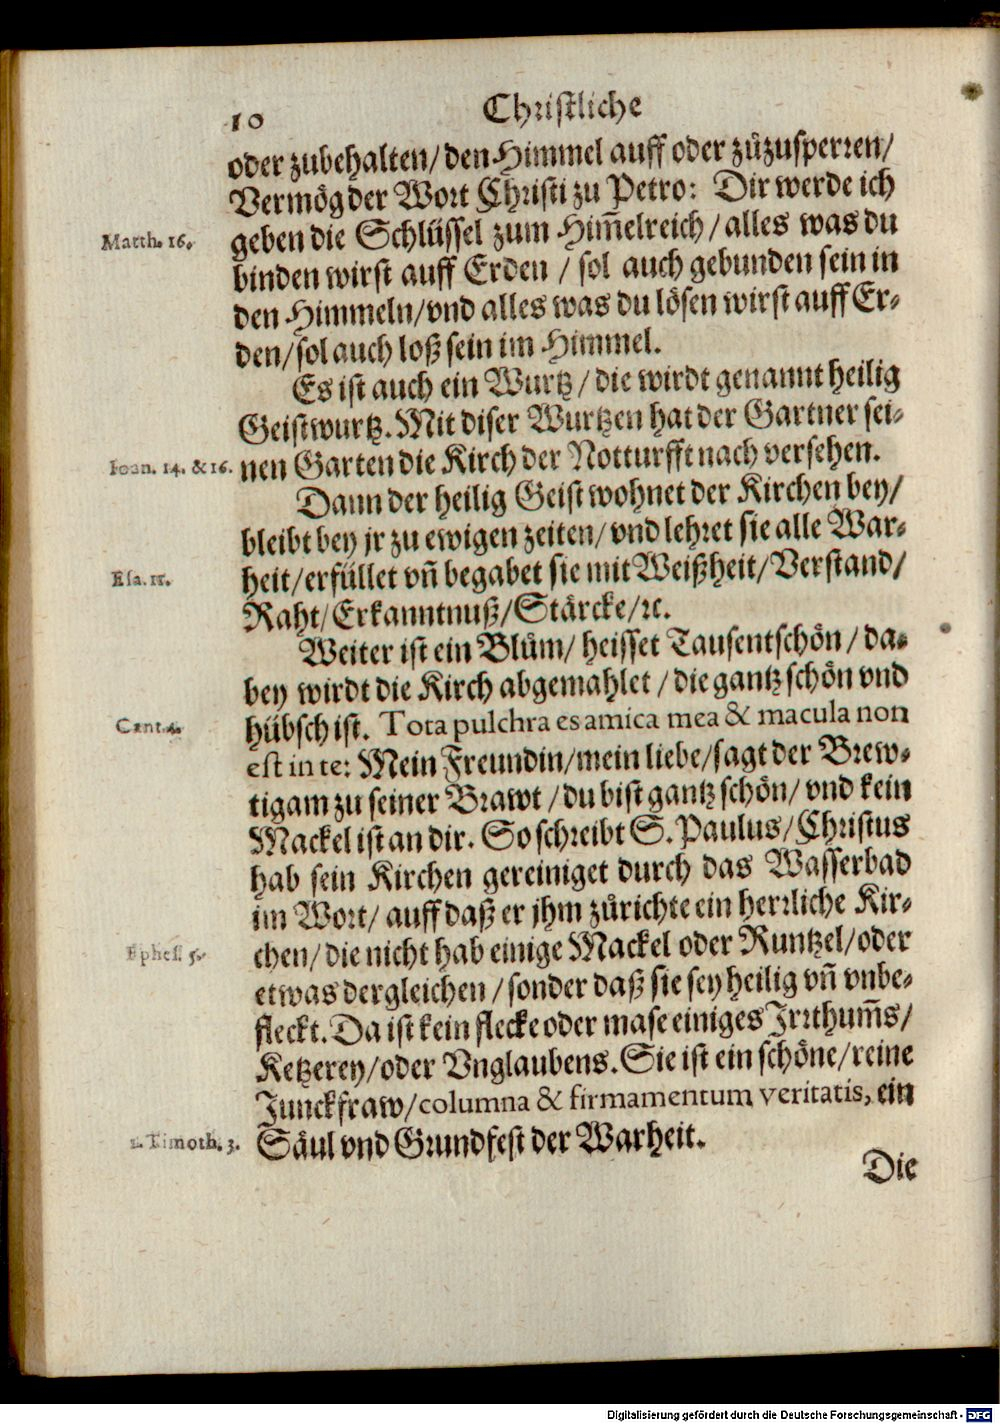 10 Christliche
oder zubehalten/ den Himmel auff oder zůzusperren/
Vermög der Wort Christi zu Petro: Dir werde ich
Matth. 16. geben die Schlüssel zum Him̃elreich/ alles was du
binden wirst auff Erden / sol auch gebunden sein in
den Himmeln/ vnd alles was du lösen wirst auff Er-
den/ sol auch loß sein im Himmel.
Es ist auch ein Wurtz/ die wirdt genannt heilig
Geistwurtz. Mit diser Wurtzen hat der Gartner sei-
Ioan. 14. & 16. nen Garten die Kirch der Notturfft nach versehen.
Dann der heilig Geist wohnet der Kirchen bey/
bleibt bey jr zu ewigen zeiten/ vnd lehret sie alle War-
Esa. 11. heit/ erfüllet vñ begabet sie mit Weißheit/ Verstand/
Raht/ Erkanntnuß/ Stärcke/ ꝛc.
Weiter ist ein Blům/ heisset Tausentschön/ da-
bey wirdt die Kirch abgemahlet / die gantz schön vnd
Cant. 4. hübsch ist. Tota pulchra es amica mea & macula non
est in te: Mein Freundin/ mein liebe/ sagt der Brew-
tigam zu seiner Brawt / du bist gantz schön/ vnd kein
Mackel ist an dir. So schreibt S. Paulus/ Christus
hab sein Kirchen gereiniget durch das Wasserbad
im Wort/ auff daß er jhm zůrichte ein herrliche Kir-
Ephes. 5. chen/ die nicht hab einige Mackel oder Runtzel/ oder
etwas dergleichen / sonder daß sie sey heilig vñ vnbe-
fleckt. Da ist kein flecke oder mase einiges Irrthum̃s/
Ketzerey/ oder Vnglaubens. Sie ist ein schöne/ reine
Junckfraw/ columna & firmamentum veritatis, ein
1. Timoth. 3. Säul vnd Grundfest der Warheit.
Die
Digitalisierung gefördert durch die Deutsche Forschungsgemeinschaft - DFG